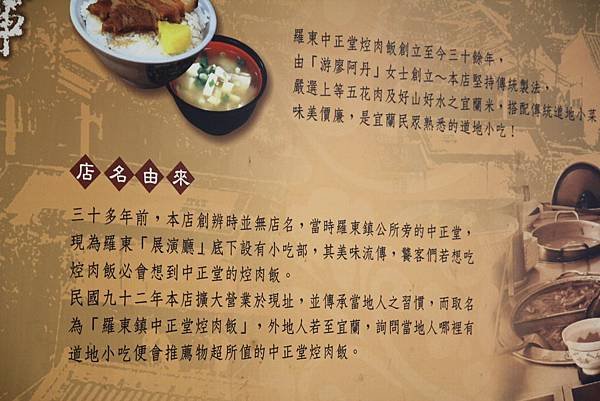 羅東中正堂焢肉飯創立至今三十餘年，
由「游廖阿丹」女士創立～本店堅持傳統製法，
嚴選上等五花肉及好山好水之宜蘭米，搭配傳統道地小菜
味美價廉，是宜蘭民眾熟悉的道地小吃！
店名由來
三十多年前，本店創辨時並無店名，當時羅東鎮公所旁的中正堂，
現為羅東「展演廳」底下設有小吃部，其美味流傳，饕客們若想吃
焢肉飯必會想到中正堂的焢肉飯。
民國九十二年本店擴大營業於現址，並傳承當地人之習慣，而取名
為「羅東鎮中正堂焢肉飯」，外地人若至宜蘭，詢問當地人哪裡有
道地小吃便會推薦物超所值的中正堂焢肉飯。